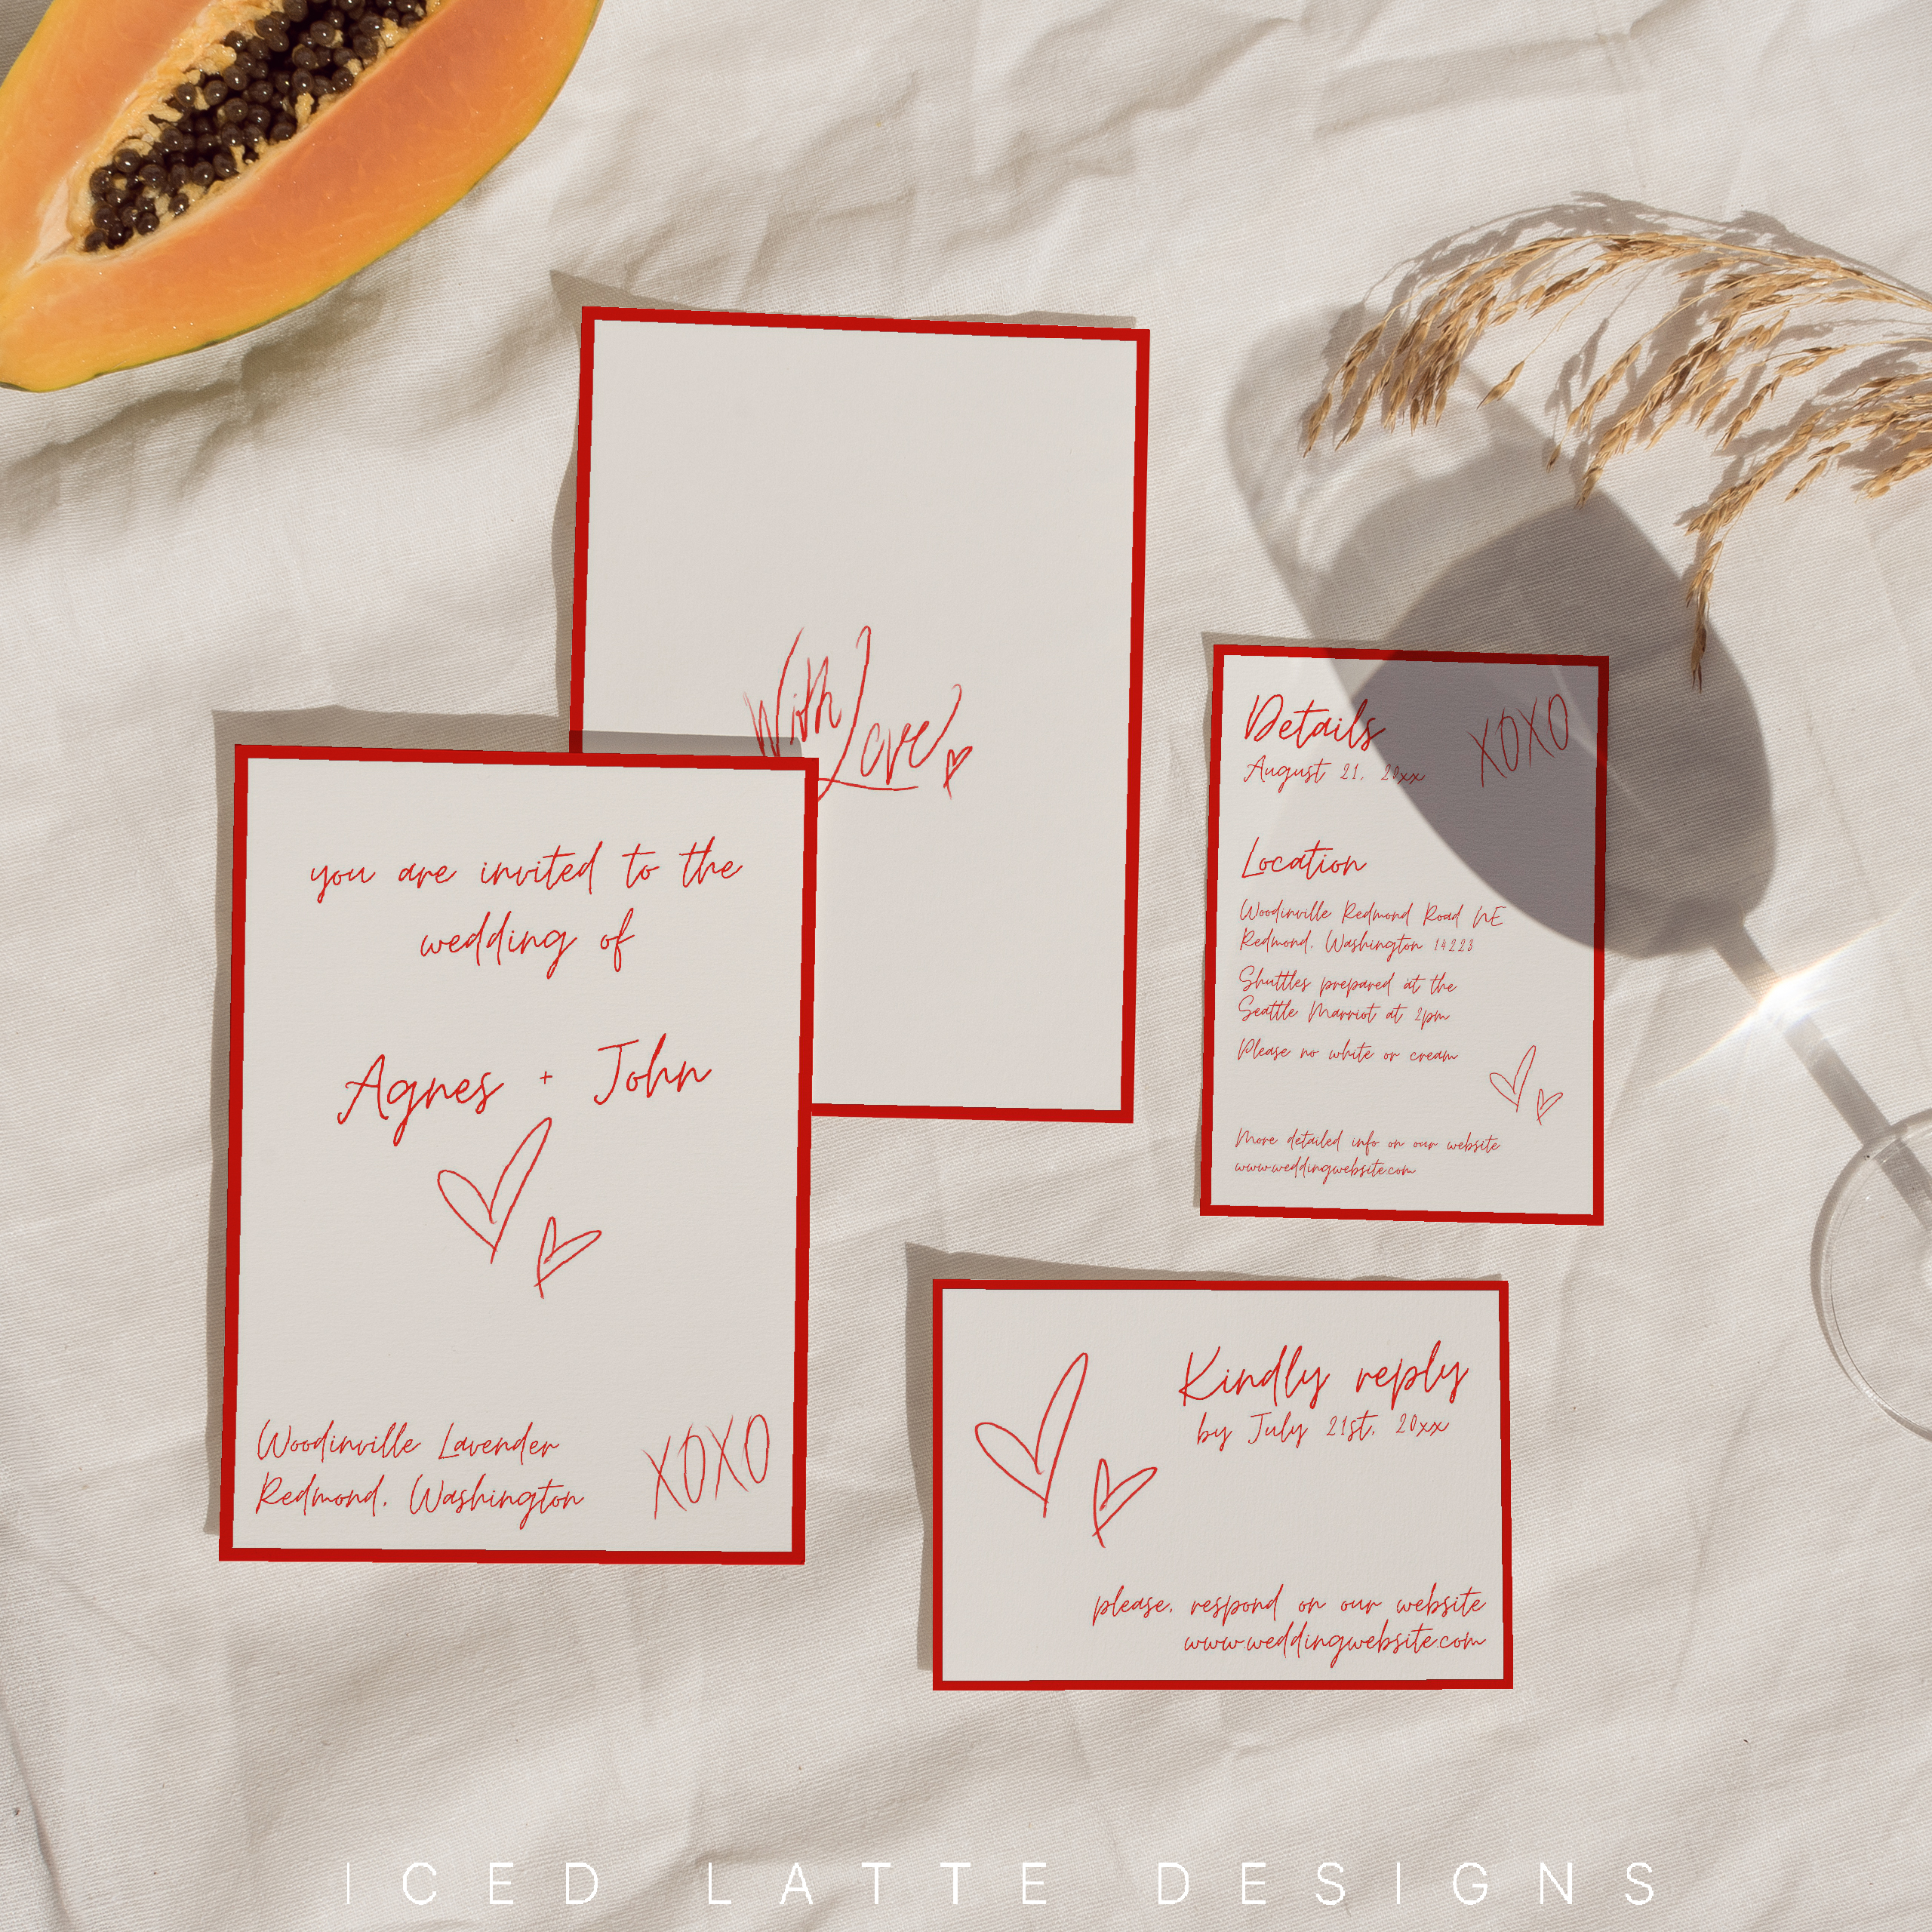 With Love
you are invited to the
wedding of
Agnes + John
Woodinville Lavender
Redmond, Washington
XOXO
Details
XOXO
August 21, 20xx
Location
Woodinville Redmond Road NE
Redmond, Washington 14223
Shuttles prepared at the
Seattle Marriot at 2pm
Please no white or cream
More detailed info on our website
www.weddingwebsite.com
Kindly reply
by July 21st, 20xx
please, respond on our website
www.weddingwebsite.com
ICED LATTE DESIGNS